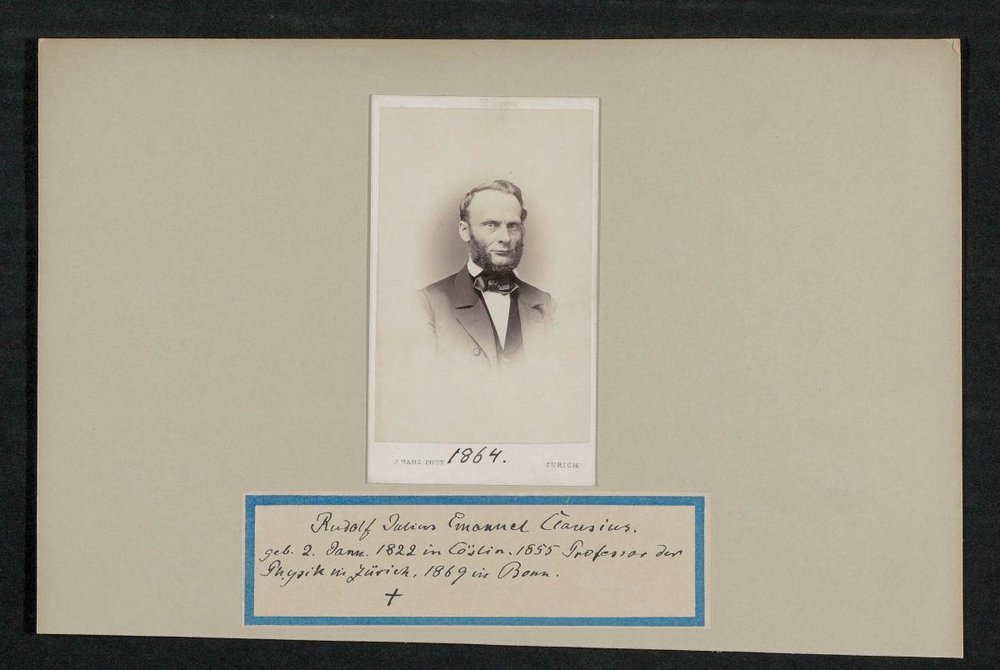 J. GANZ, PHOT.
1864.
ZURICH
Rudolf Julius Emanuel Clausius.
geb. 2. Jann. 1822 in Cöslin. 1855 Professor der
Physik in Zürich, 1869 in Bonn.
+